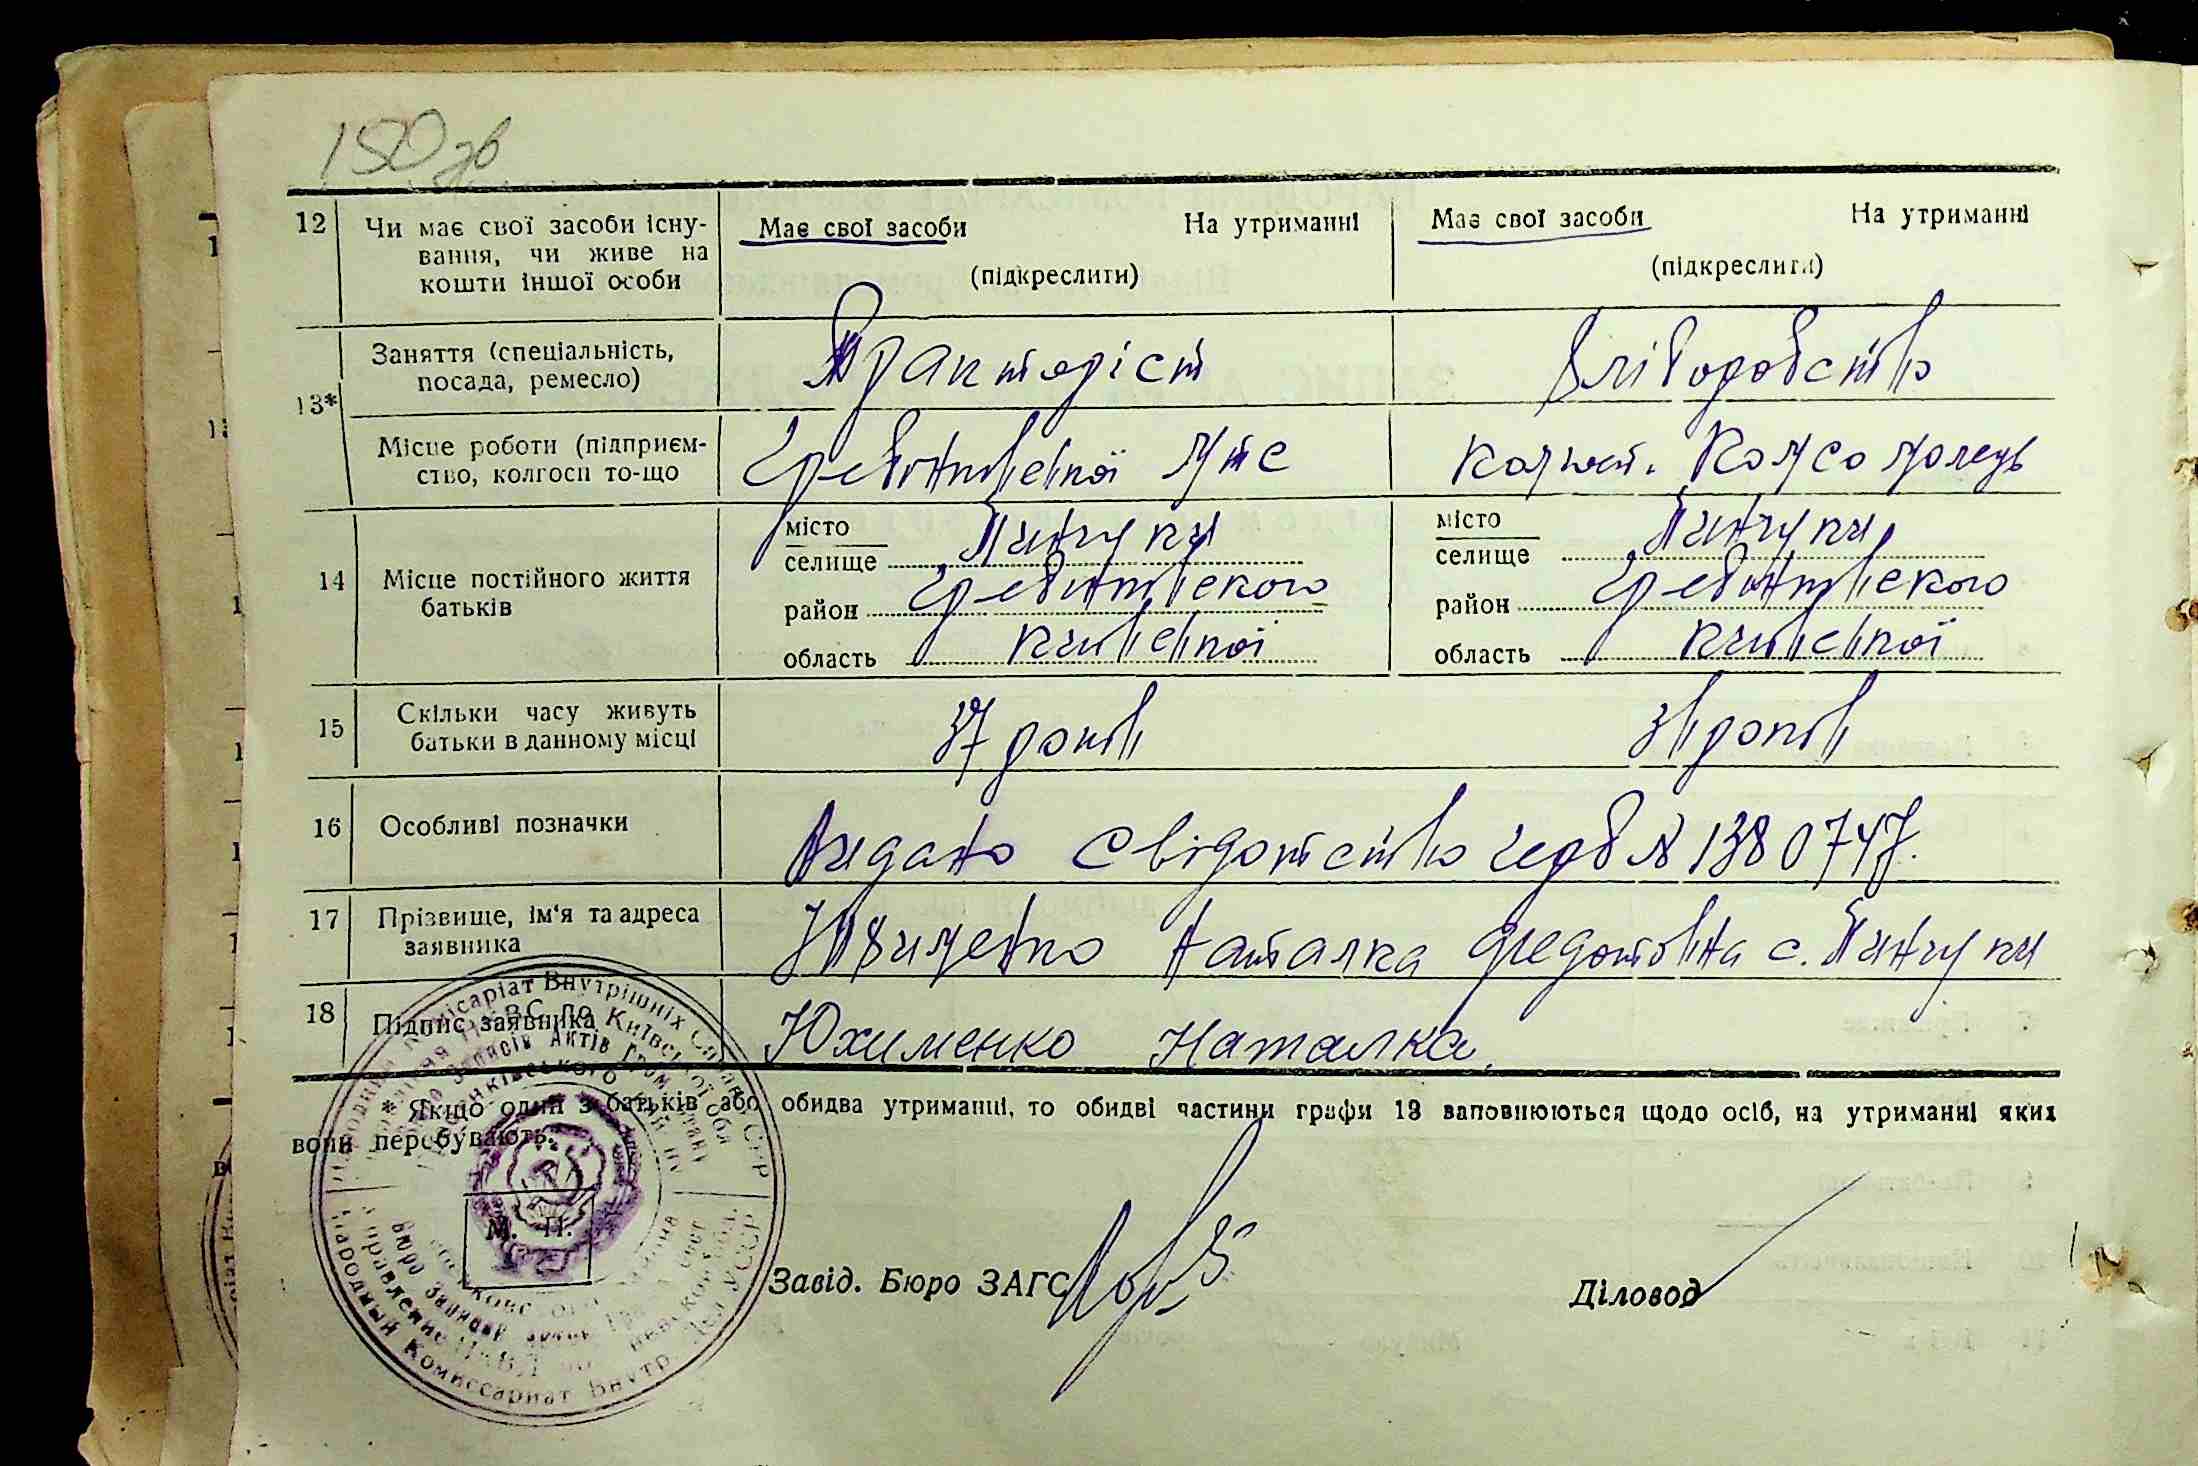 150 зв
12 Чи має свої засоби існу-
вання, чи живе на
кошти іншої особи
Має свої засоби На утриманні
(підкреслити)
Має свої засоби На утриманні
(підкреслити)
13*
Заняття (спеціальність,
посада, ремесло)
Тракторіст
Хліборобство
Місце роботи (підприєм-
ство, колгосп то-що
Гребінківської мтс
Колгосп. Комсомолець
14 Місце постійного життя
батьків
місто
селище Пинчуки
район Гребінківского
область Київської
місто
селище Пинчуки
район Гребінківского
область Київської
15 Скільки часу живуть
батьки в данному місці
37 років
років
16 Особливі позначки
Видано свідотство черв № 1380747.
17 Прізвище, ім'я та адреса
заявника
Юхименко Наталка Федотовна с. Пинчуки
18 Підпис заявника
Юхименко Наталка
* Якщо один з батьків або обидва утриманці, то обидві частини графи 13 заповнюються щодо осіб, на утриманні яких
вони перебувають.
М. П.
Завід. Бюро ЗАГС
Діловод
Народний Комісаріат Внутрішніх Справ УСРР
Народный Комиссариат Внутр. Дел УССР